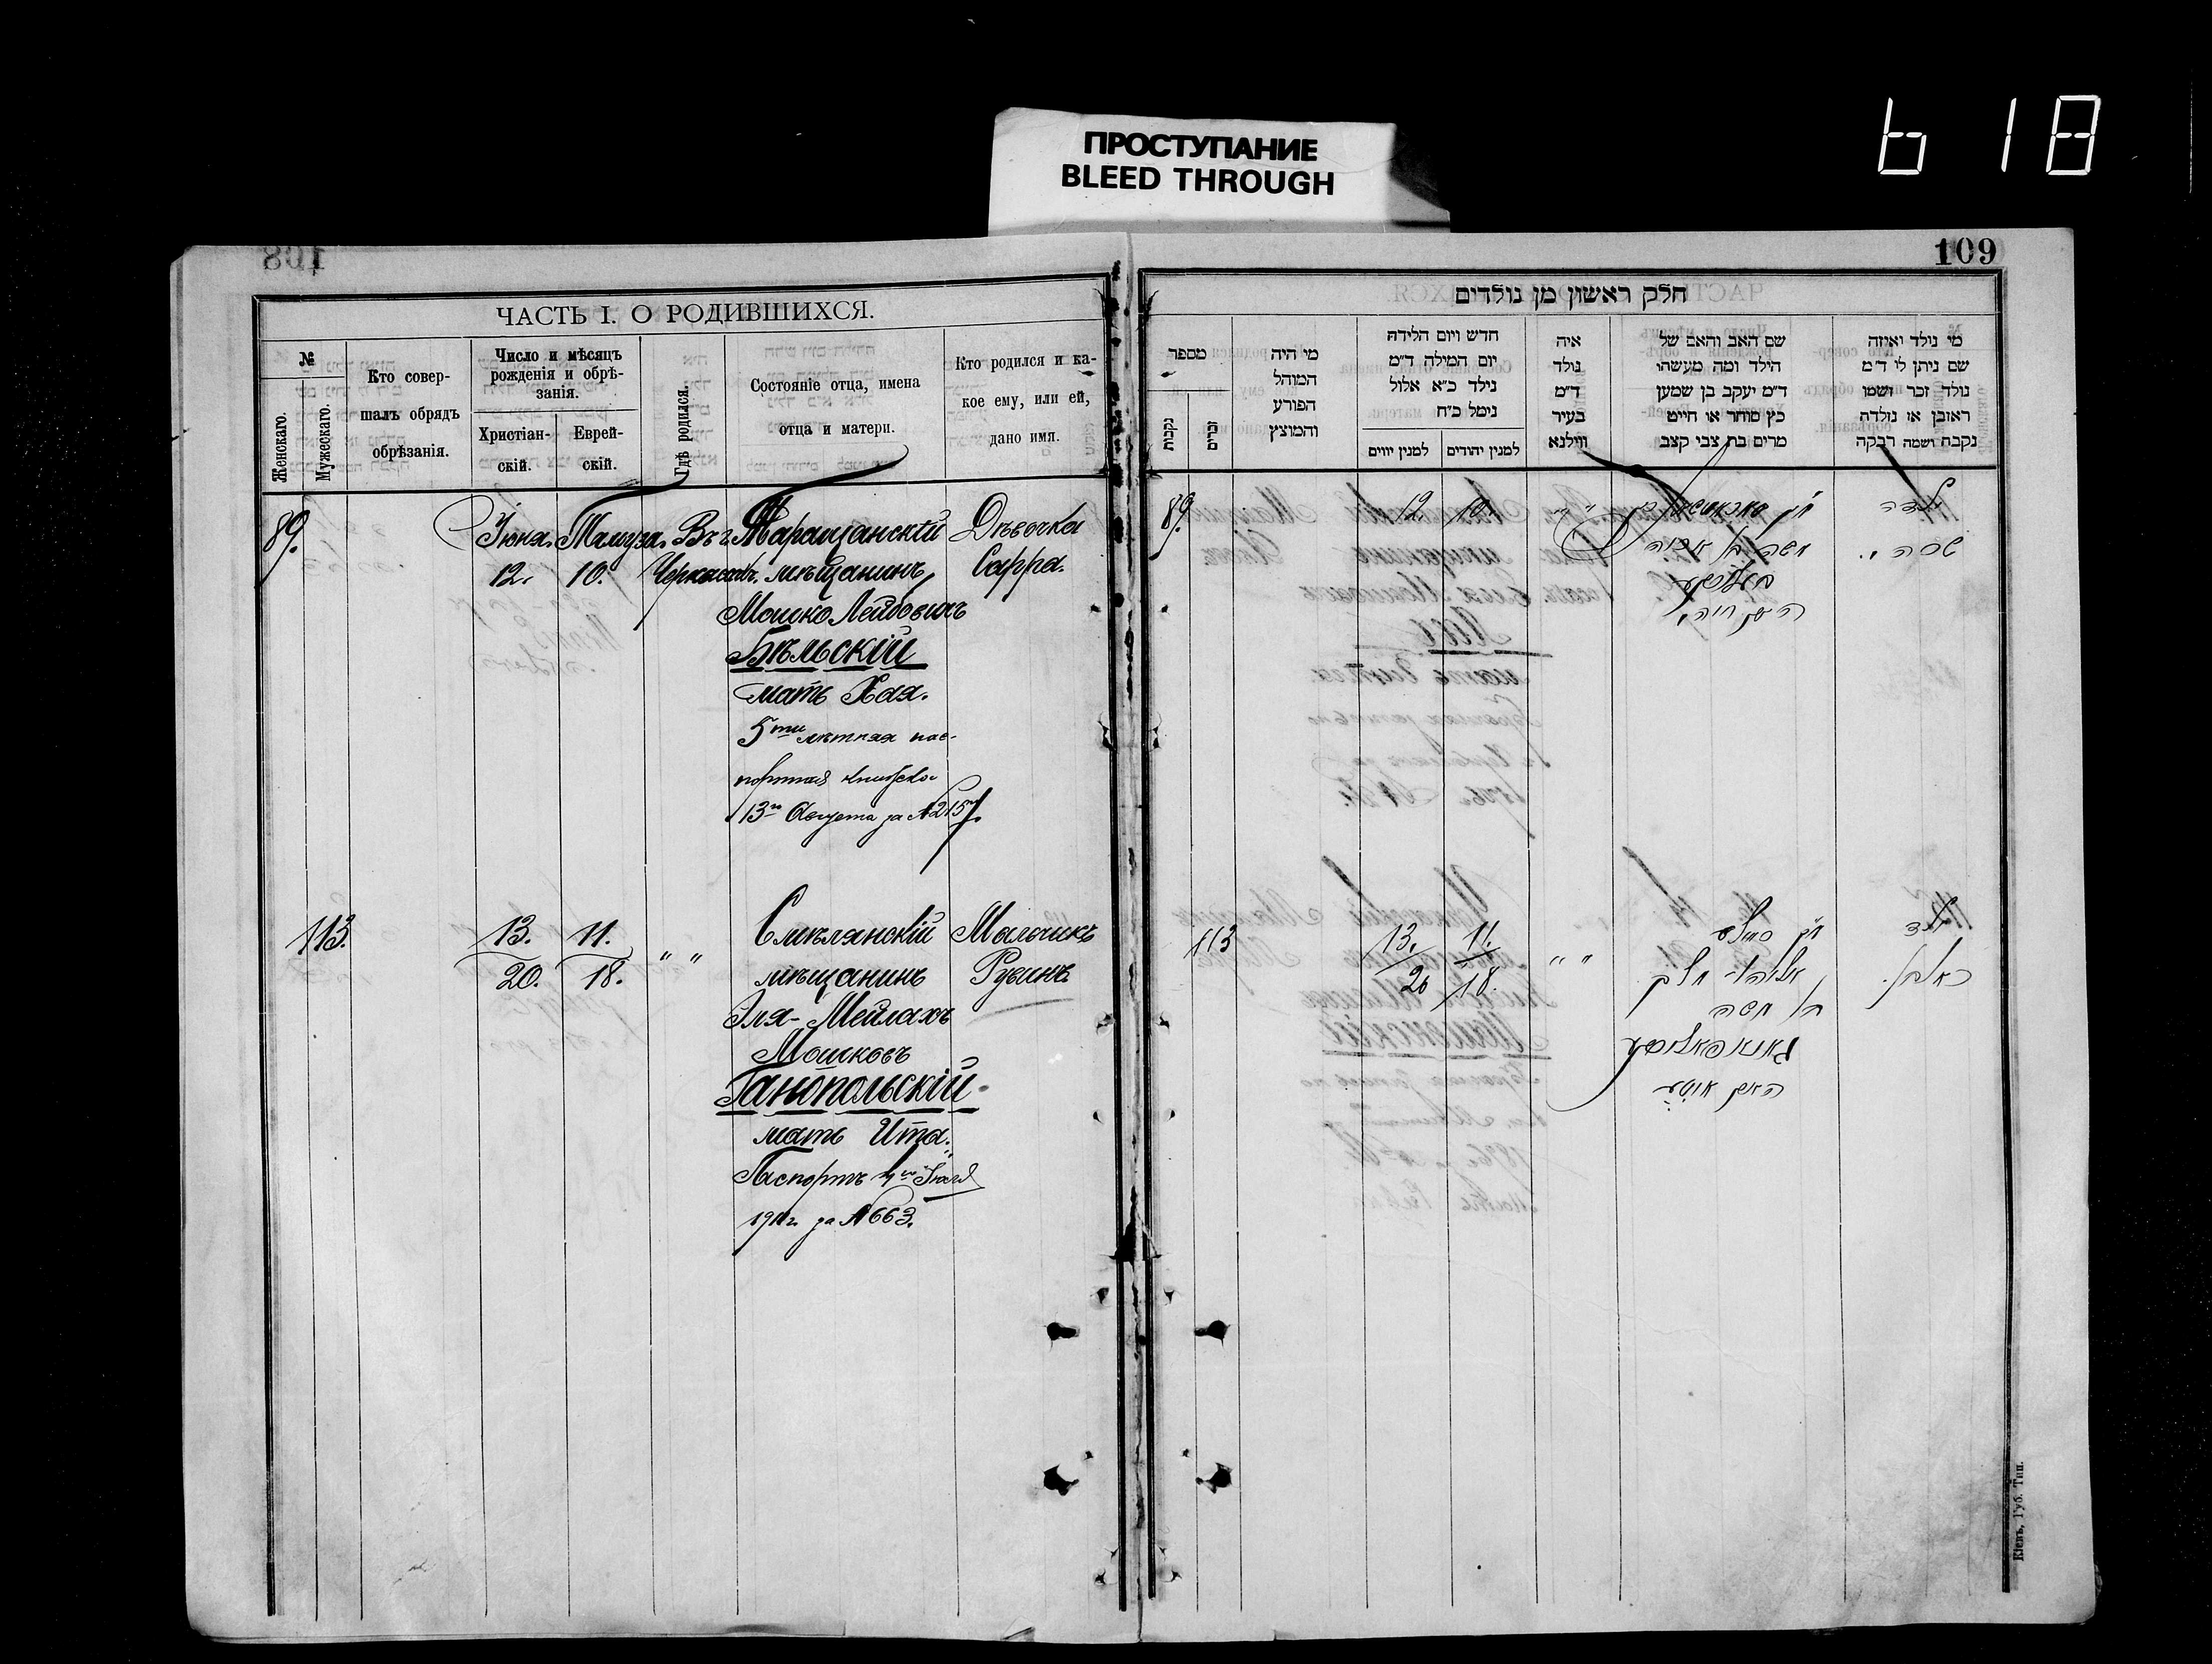 ПРОСТУПАНИЕ
BLEED THROUGH
618
108
109
ЧАСТЬ I. О РОДИВШИХСЯ.
№
Женскаго.
Мужескаго.
Кто совер-
шалъ обрядъ
обрѣзанія.
Число и мѣсяцъ
рожденія и обрѣ-
занія.
Христіан-
скій.
Еврей-
скій.
Гдѣ родился.
Состояніе отца, имена
отца и матери.
Кто родился и ка-
кое ему, или ей,
дано имя.
89.
Іюня. Тамуза. Въ г. Таращанскій Дѣвочка
12. 10. Черкасахъ. мѣщанинъ Сарра.
Мошко Лейбовичъ
Бѣльскій
мать Хая.
5ти лѣтняя пас-
портная книжка
13го Августа за №215
113. 13. 11. " " Смѣлянскій Мальчикъ
20. 18. мѣщанинъ Рувинъ
Эля-Мейлахъ
Мошковъ
Ганопольскій
мать Ита.
Паспортъ
за №663.
חלק ראשון מן נולדים
מספר
נקבות
זכרים
מי היה
המוהל
הפורע
והמוצץ
חדש ויום הלידה
יום המילה ד״מ
נילד כ״א אלול
נימל כ״ח
למנין יווים
למנין יהודים
איה
נולד
ד״מ
בעיר
ווילנא
שם האב והאם של
הילד ומה מעשהו
ד״מ יעקב בן שמען
כץ סוחר או חייט
מרים בת צבי קצב
מי נולד ואיזה
שם ניתן לו ד״מ
נולד זכר ושמו
ראובן או נולדה
נקבה ושמה רבקה
89. 12 10. ילדה
שרה
משה בן
האם חיה
113 13. 11. " " ילד
20 18. ראובן
אליהו מלך
בן משה
האם איטע
Кіевъ, Губ. Тип.